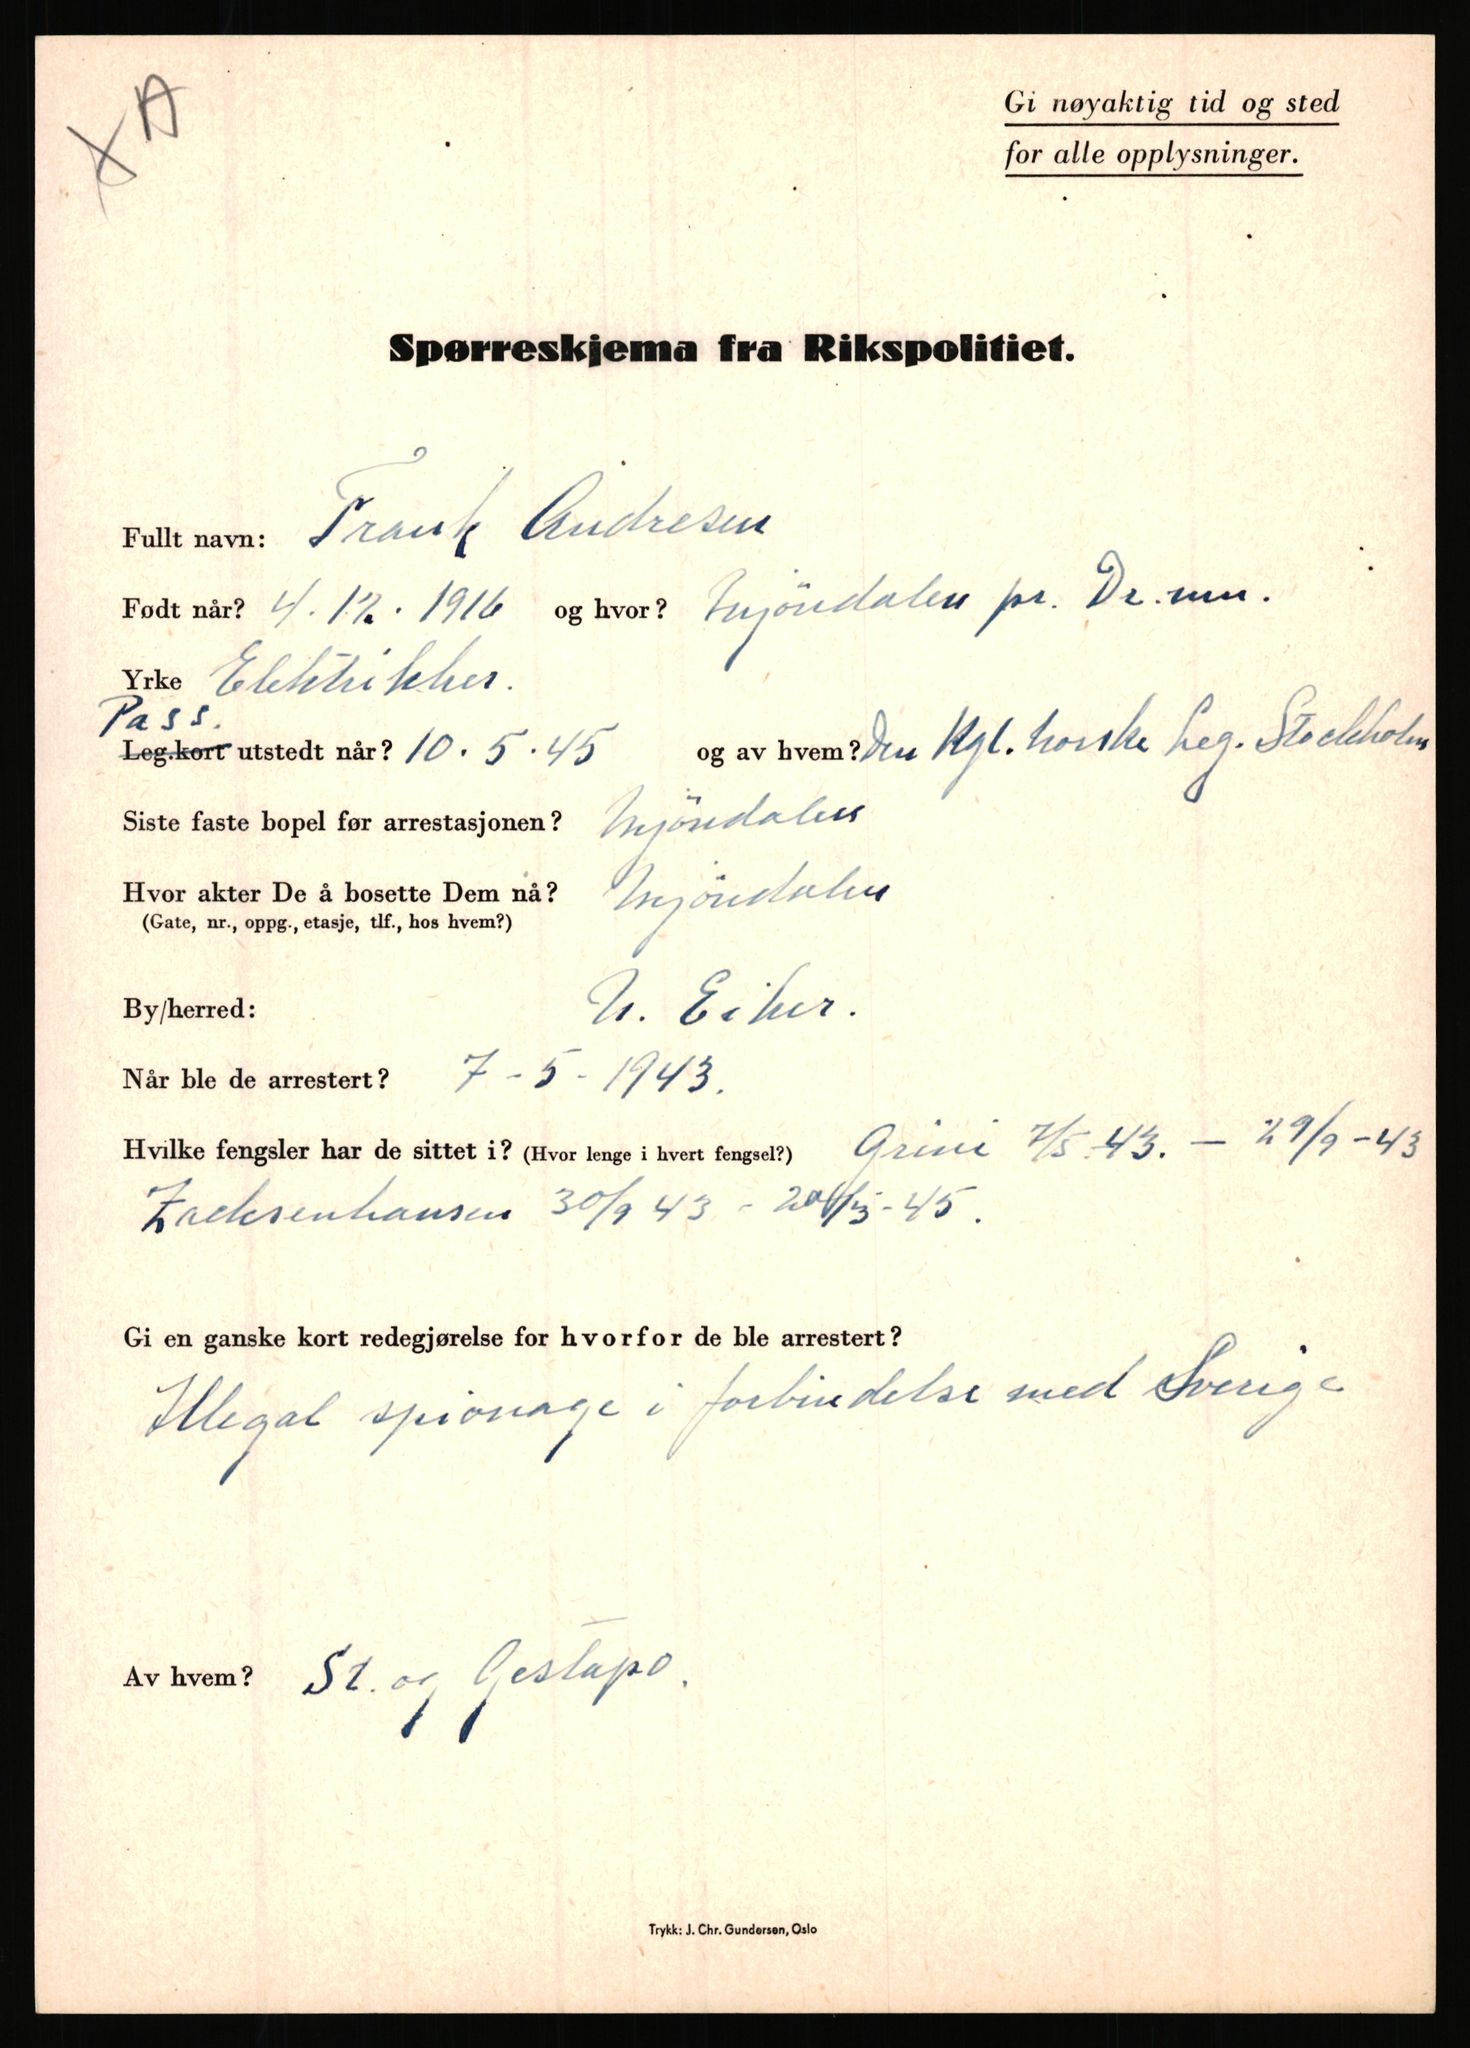 XA
Gi nøyaktig tid og sted
for alle opplysninger.
Spørreskjema fra Rikspolitiet.
Fullt navn: Frank Andresen
Født når? 4.12.1916 og hvor? Mjöndalen pr. Dr.mn.
Yrke Elektrikker.
Pass.
Leg.kort utstedt når? 10.5.45 og av hvem? Den Kgl. norske Leg. Stockholm
Siste faste bopel før arrestasjonen? Mjöndalen
Hvor akter De å bosette Dem nå? Mjöndalen
(Gate, nr., oppg., etasje, tlf., hos hvem?)
By/herred: N. Eiker.
Når ble de arrestert? 7-5-1943.
Hvilke fengsler har de sittet i? (Hvor lenge i hvert fengsel?) Grini 7/5 43. — 29/9-43
Zachsenhausen 30/9 43 - -45.
Gi en ganske kort redegjørelse for hvorfor de ble arrestert?
Illegal spionage i forbindelse med Sverige
Av hvem? St. og Gestapo.
Trykk: J. Chr. Gundersen, Oslo